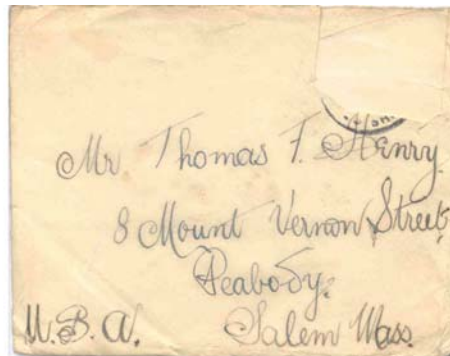 Mr. Thomas F. Henry.
8 Mount Vernon Street,
Peabody.
U.S.A. Salem Mass.